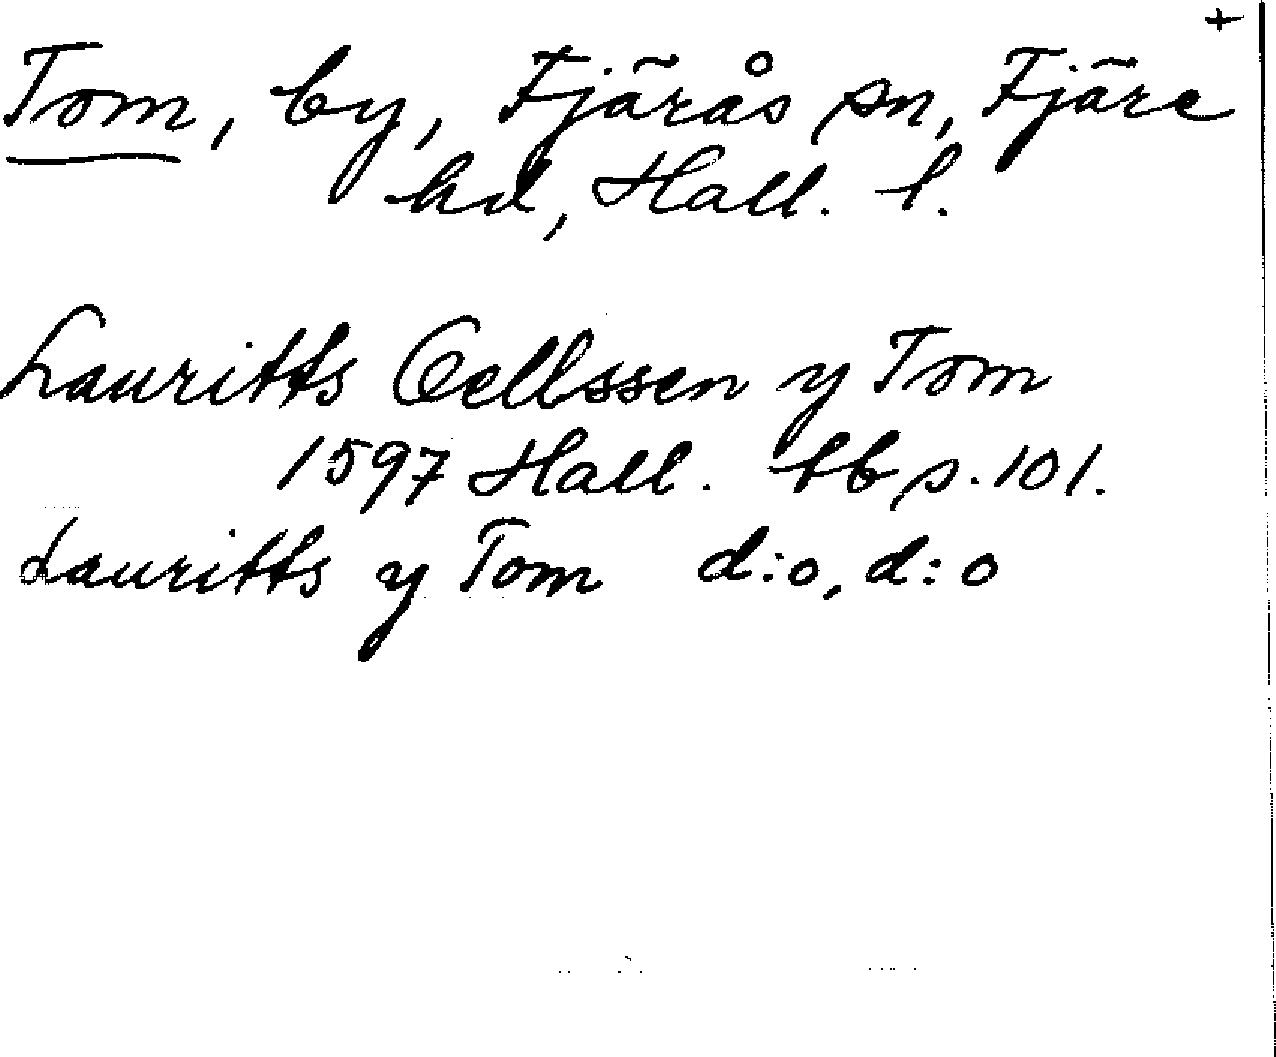 +
Tom, by, Fjärås sn, Fjäre
hd, Hall. l.
Lauritts Oellssen y Tom
1597 Hall. lb s. 101.
Lauritts y Tom d:o, d:o